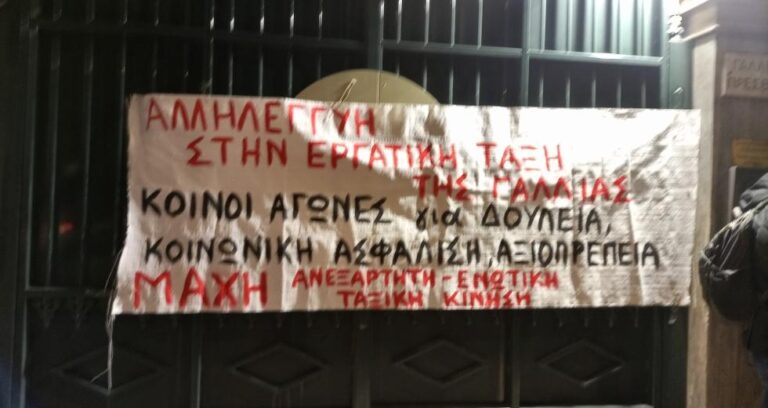 ΑΛΛΗΛΕΓΓΥΗ
ΣΤΗΝ ΕΡΓΑΤΙΚΗ ΤΑΞΗ
ΤΗΣ ΓΑΛΛΙΑΣ
ΚΟΙΝΟΙ ΑΓΩΝΕΣ για ΔΟΥΛΕΙΑ,
ΚΟΙΝΩΝΙΚΗ ΑΣΦΑΛΙΣΗ, ΑΞΙΟΠΡΕΠΕΙΑ
ΜΑΧΗ ΑΝΕΞΑΡΤΗΤΗ - ΕΝΩΤΙΚΗ
ΤΑΞΙΚΗ ΚΙΝΗΣΗ